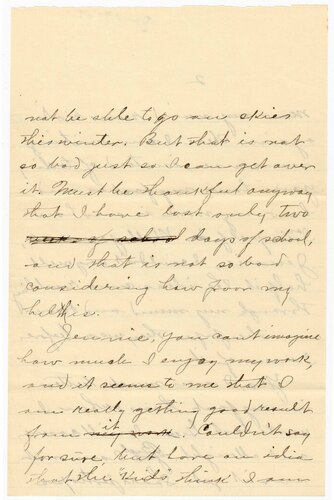 not be able to go on skies
this winter. But that is not
so bad just so I can get over
it. Must be thankful anyway
that I have lost only two
weeks of school days of school,
and that is not so bad
considering how poor my
helth is.
Jennie, you cant imagine
how much I enjoy my work,
and it seems to me that I
am really getting good result
from it work. Couldn't say
for sure, but have an idia
that the "kids" think I am